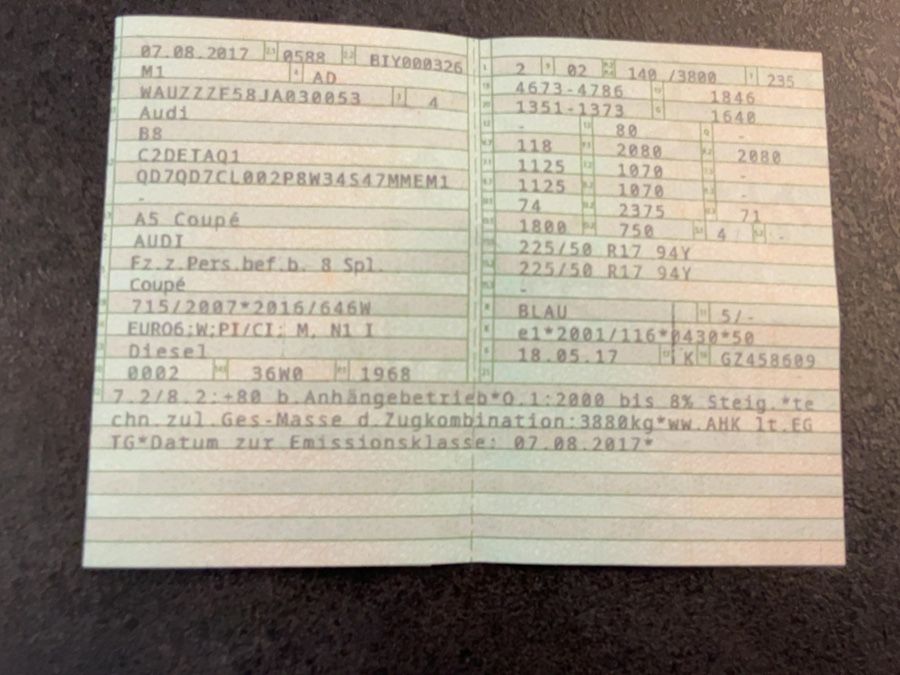 07.08.2017 0588 BIY000326
M1 AD
WAUZZZF58JA030053 4
Audi
B8
C2DETAQ1
QD7QD7CL002P8W34S47MMEM1
-
A5 Coupé
AUDI
Fz.z.Pers.bef.b. 8 Spl.
Coupé
715/2007*2016/646W
EURO6;W;PI/CI; M, N1 I
Diesel
0002 36W0 1968
2 02 140 /3800 235
4673-4786 1846
1351-1373 1640
- 80 -
118 2080 2080
1125 1070 -
1125 1070 -
74 2375 71
1800 750 4 -
225/50 R17 94Y
225/50 R17 94Y
-
BLAU 5/-
e1*2001/116*0430*50
18.05.17 K GZ458609
7.2/8.2:+80 b.Anhängebetrieb*O.1:2000 bis 8% Steig.*te
chn.zul.Ges-Masse d.Zugkombination:3880kg*ww.AHK lt.EG
TG*Datum zur Emissionsklasse: 07.08.2017*